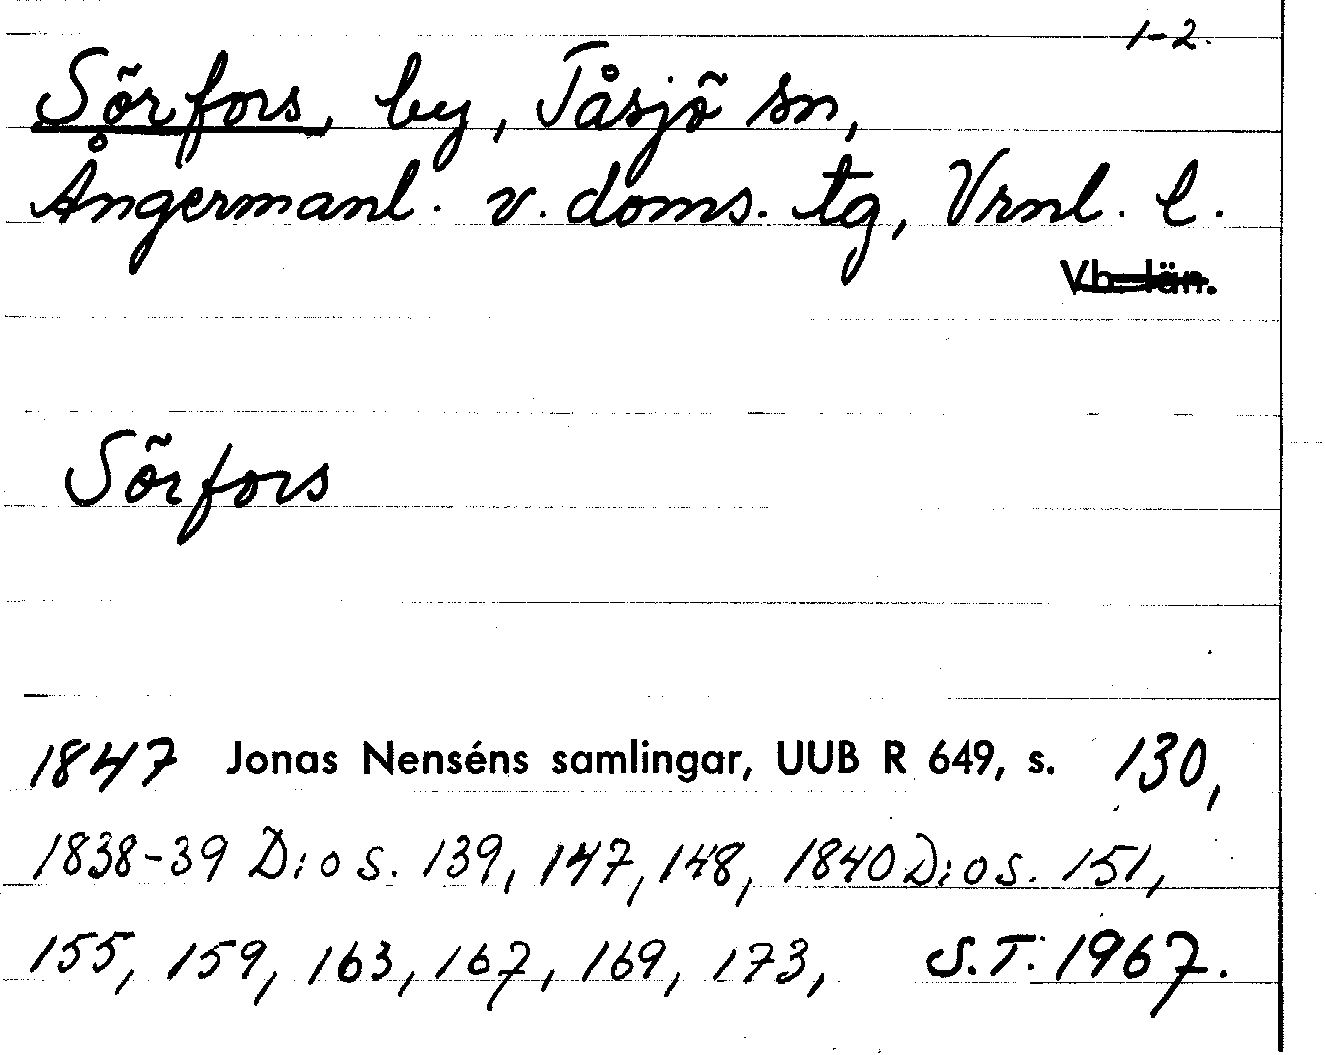 1-2.
Sörfors, by, Tåsjö sn,
Ångermanl. v. doms. tg, Vrnl. l.
Vb. län.
Sörfors
1847 Jonas Nenséns samlingar, UUB R 649, s. 130,
1838-39 D:o s. 139, 147, 148, 1840 D:o s. 151,
155, 159, 163, 167, 169, 173, S.T. 1967.